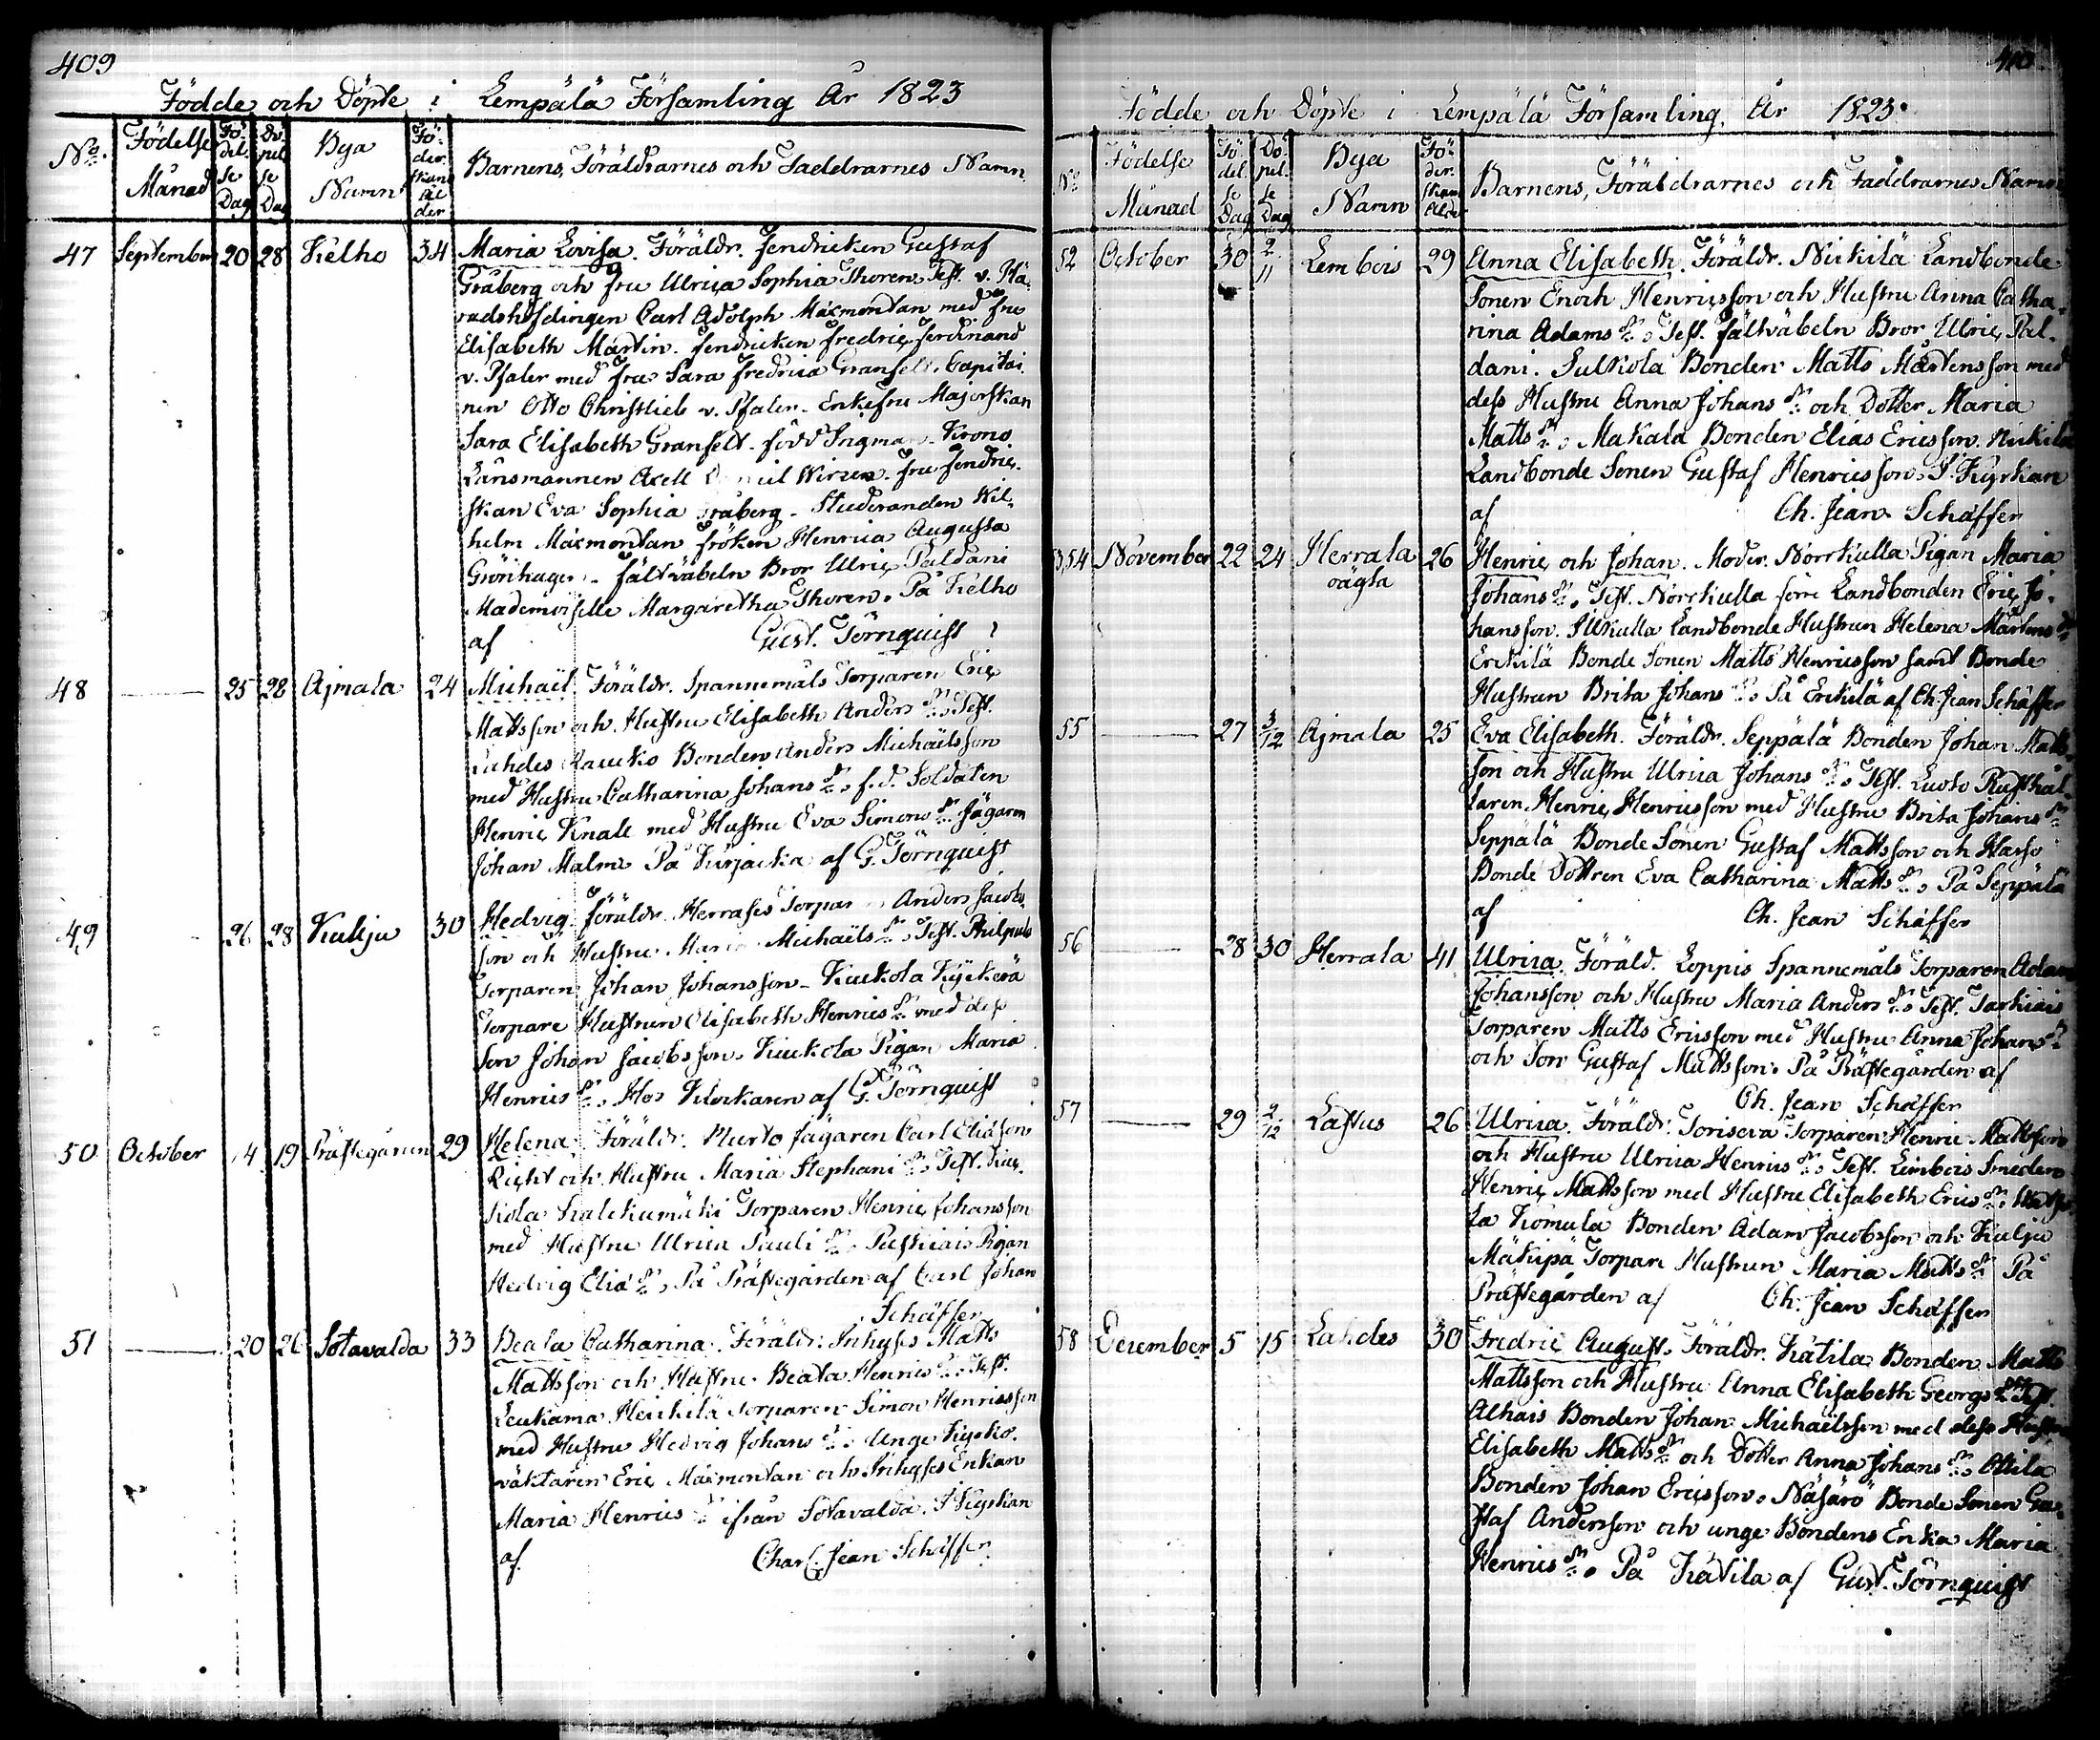 409
Födde och Döpte i Lempälä Församling År 1823
No. Födelse Månad Födelse Dag Döpelse Dag Bya Namn Föderskans Ålder Barnens, Föräldrarnes och Faddrarnes Namn
47 September 20 28 Kelho 34 Maria Lovisa. Föräldr. Fendricken Gustaf
Gråberg och Fru Ulrica Sophia Thoren. Test. v. Hä-
radshöfdingen Carl Adolph Maxmontan med Fru
Elisabeth Martin. Fendricken Fredric Ferdinand
v. Pfaler med Fru Sara Fredrica Granfelt. Capitai-
nen Otto Christlieb v. Pfaler. Enkefru Majorskan
Sara Elisabeth Granfelt. född Krono
Länsmannen Axell Wirzen. Fru Fendric-
skan Eva Sophia Gråberg. Studeranden Wil-
helm Maxmontan Fröken Henrica Augusta
Grönhagen. Fältväbeln Bror Ulric Paldani
Mademoiselle Margaretha Thoren. På Kelho
af Gust. Törnquist
48 — 25 28 Ajmala 24 Michaël. Föräldr. Spannemåls Torparen Eric
Mattsson och Hustru Elisabeth Anders dr. Test.
Lahdes Bonden Anders Michaëlsson
med Hustru Catharina Johans dr. f.d. Soldaten
Henric Knall med Hustru Eva Simons dr. Jägaren
Johan Malm. På af G. Törnquist
49 26 28 Kulju 30 Hedvig. Föräldr. Torparen Anders Jacobs
son och Hustru Maria Michaëls dr. Test.
Torparen Johan Johansson. Kuckola
Torpare Hustrun Elisabeth Henrics dr. med dess
Son Johan Jacobsson. Kuckola Pigan Maria
Henrics dr. Hos Klockaren af G. Törnquist
50 October 14 19 Prästegården 29 Helena. Föräldr. Murto Jägaren Carl Eliasson
och Hustru Maria Stephani dr. Test. Kuc-
kola Torparen Henric Johansson
med Hustru Ulrica Pauli dr. Pigan
Hedvig Eliæ dr. På Prästegården af Carl Johan
Schäffer
51 — 20 26 Sotavalda 33 Beata Catharina. Föräldr. Inhyses Matts
Mattsson och Hustru Beata Henrics dr. Test.
Leukama Heikkilä Torparen Simon Henricsson
med Hustru Hedvig Johans dr. Unge Kyrko-
väktaren Eric Maxmontan och Inhyses Enkan
Maria Henrics dr. ifrån Sotavalda. I Kyrkan
af Charl. Jean Schäffer
410
Födde och Döpte i Lempälä Församling År 1823.
No Födelse Månad Födelse Dag Döpelse Dag Bya Namn Föderskans Ålder Barnens, Föräldrarnes och Faddrarnes Namn
52 October 30 2/11 Lembois 29 Anna Elisabeth. Föräldr. Nickilä Landbonde
Sonen Enoch Henricsson och Hustru Anna Catha-
rina Adams dr. Test. Fältväbeln Bror Ulric Pal-
dani. Sulkola Bonden Matts Mårtensson med
dess Hustru Anna Johans dr. och Dotter Maria
Matts dr. Makala Bonden Elias Ericsson. Nickilä
Landbonde Sonen Gustaf Henricsson. I Kyrkan
af Ch. Jean Schäffer
53,54 November 22 24 Herrala 26 Henric och Johan. Moder. Norrkulla Pigan Maria
oägta Johans dr. Test. Norrkulla förre Landbonden Eric Jo-
hansson. Landbonde Hustrun Helena Mårtens dr.
Erckilä Bonde Sonen Matts Henricsson samt Bonde
Hustrun Brita Johans dr. På Erckilä af Ch. Jean Schäffer
55 — 27 3/12 Ajmala 25 Eva Elisabeth. Föräldr. Seppälä Bonden Johan Matts
son och Hustru Ulrica Johans dr. Test. Luoto Rusthål-
laren Henric Henricsson med Hustru Brita Johans dr.
Seppälä Bonde Sonen Gustaf Mattsson och
Bonde Dottren Eva Catharina Matts dr. På Seppälä
af Ch. Jean Schäffer
56 — 28 30 Herrala 41 Ulrica. Föräld. Loppis Spannemåls Torparen Adam
Johansson och Hustru Maria Anders dr. Test.
Torparen Matts Ericsson med Hustru Anna Johans dr.
och Son Gustaf Mattsson. På Prästegården af
Ch. Jean Schäffer
57 — 29 2/12 Lastus 26 Ulrica. Föräldr. Toriseva Torparen Henric Mattsson
och Hustru Ulrica Henrics dr. Test. Lembois Smeden
Henric Mattsson med Hustru Elisabeth Erics dr.
la Komula Bonden Adam Jacobsson och Kulju
Mäkipä Torpare Hustrun Maria Matts dr. På
Prästegården af Ch. Jean Schäffer
58 December 5 15 Lahdes 30 Fredric August. Föräldr. Kätilä Bonden Matts
Mattsson och Hustru Anna Elisabeth Georgs dr. Test.
Alhais Bonden Johan Michaëlsson med dess Hustru
Elisabeth Matts dr. och Dotter Anna Johans dr. Ottila
Bonden Johan Ericsson. Näsärö Bonde Sonen Gu-
staf Andersson och unge Bondens Enka Maria
Henrics dr. På Kätilä af Gust. Törnquist